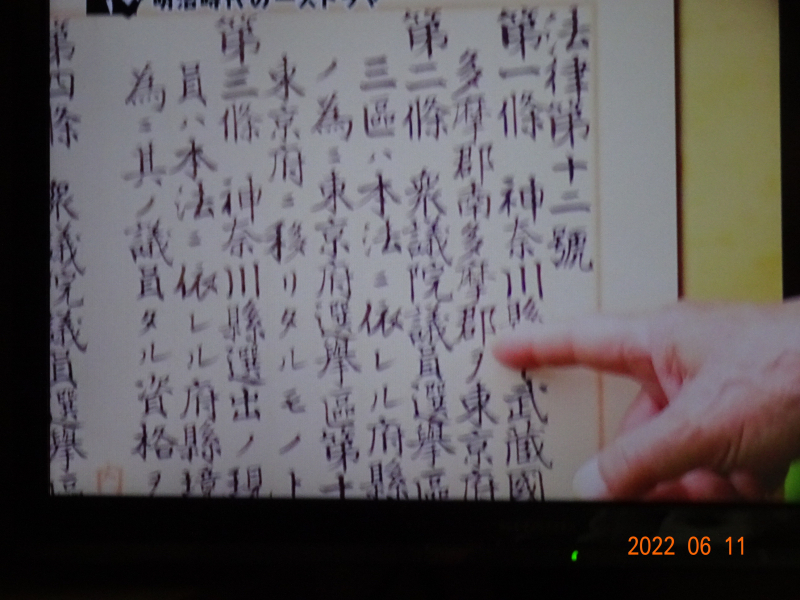 法律第十二號
第一條 神奈川縣 武蔵國
多摩郡南多摩郡ノ東京府
第二條 衆議院議員選擧區
三區ハ本法ニ依レル府縣
ノ為ニ東京府選擧區第十
東京府ニ移リタルモノト
第三條 神奈川縣選出ノ現
員ハ本法ニ依レル府縣境
為ニ其ノ議員タル資格ヲ
第四條 衆議院議員選擧區
内
2022 06 11